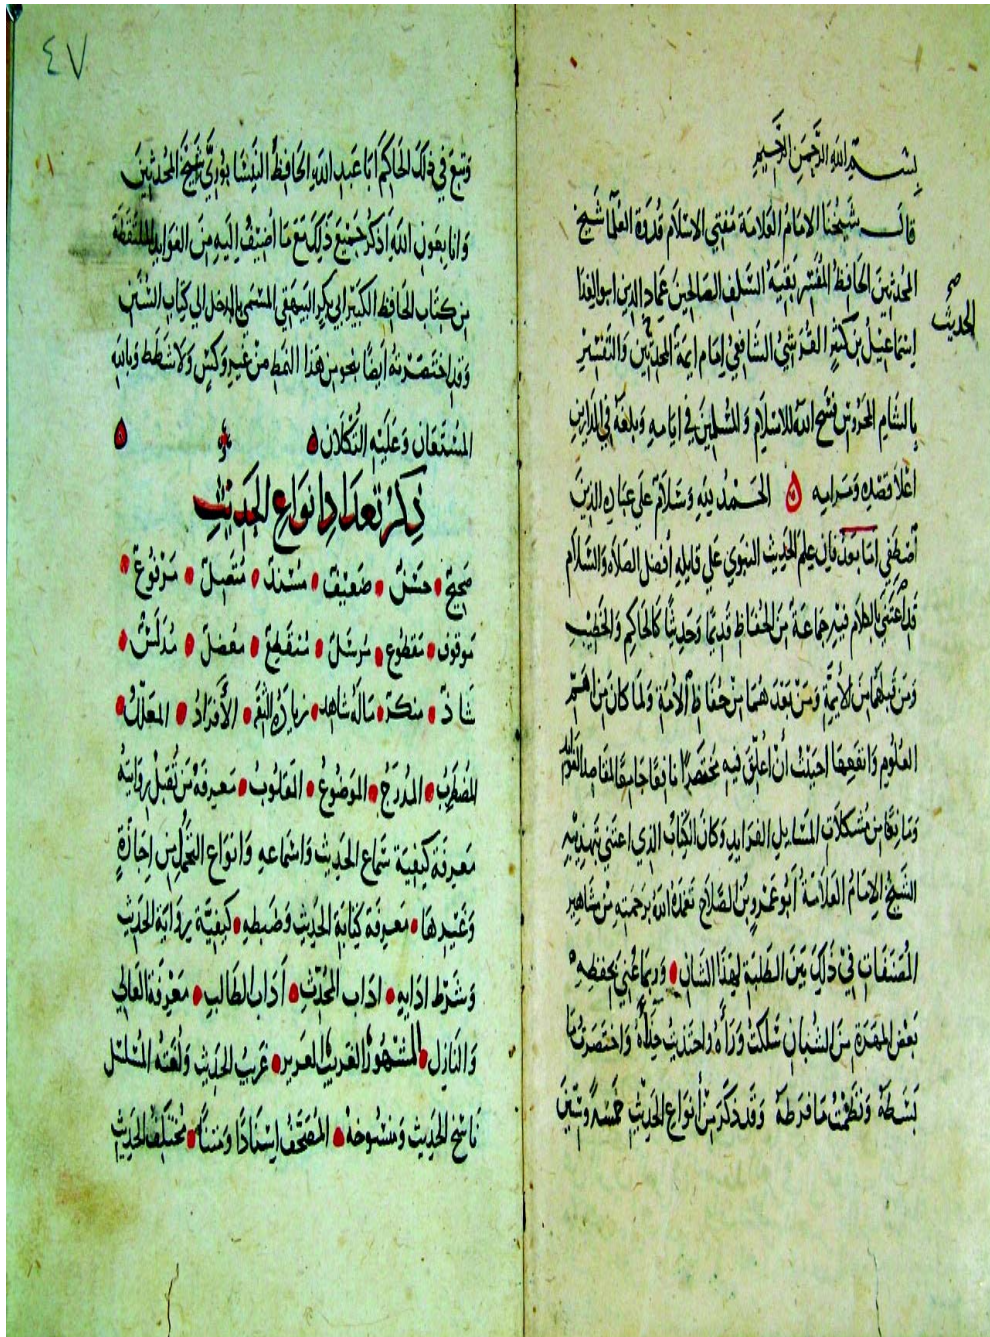 بسم الله الرحمن الرحيم
قال شيخنا الامام العلامة مفتي الاسلام قدوة العلما شيخ
المحدثين الحافظ المفسر بقية السلف الصالحين عماد الدين ابو الفدا
الحديث صح
اسماعيل بن كثير القرشي الشافعي امام ايمة المحدثين والتفسير
بالشام المحروس فسح الله للاسلام والمسلمين في ايامه وبلغه في الدارين
اعلا قصده ومرامه الحمد لله وسلام علي عباده الذين
اصطفي اما بعد فان علم الحديث النبوي علي قايله افضل الصلاه والسلام
قد اعتني بالكلام فيه جماعة من الحفاظ قديما وحديثا كالحاكم والخطيب
ومن قبلهما من الايمة ومن بعدهما من حفاظ الامة ولما كان من اهم
العلوم وانفعها احببت أن أعلق فيه مختصرا نافعا جامعا لمقاصد الفوايد
ومانعا من مشكلات المسايل الفرايد وكان الكتاب الذي اعتني بتهذيبه
الشيخ الامام العلامة أبو عمرو بن الصلاح تغمده الله برحمته من مشاهير
المصنفات في ذلك بين الطلبة لهذا الشان وربما عني بحفظه
بعض المهرة من الشبان سلكت وراءه واحتذيت حذاءه واختصرت ما
بسطه ونظمت ما فرطه وقد ذكر من أنواع الحديث خمسة وستين
٤٧
وتبع في ذلك الحاكم ابا عبد الله الحافظ النيسابوري شيخ المحدثين
وانا بعون الله اذكر جميع ذلك مع ما اضيف اليه من الفوايد الملتقطة
من كتاب الحافظ الكبير ابي بكر البيهقي المسمي بالمدخل الي كتاب السنن
وقد اختصرته أيضا بنحو من هذا النمط من غير وكس ولا شطط وبالله
المستعان وعليه التكلان
ذكر تعداد انواع الحديث
صحيح حسن ضعيف مسند متصل مرفوع
موقوف مقطوع مرسل منقطع معضل مدلس
شاذ منكر ماله شاهد زيادة الثقة الأفراد المعلل
المضطرب المدرج الموضوع المقلوب معرفة من تقبل روايته
معرفة كيفية سماع الحديث واسماعه وانواع التحمل من اجازة
وغيرها معرفة كتابة الحديث وضبطه كيفية رواية الحديث
وشرط ادايه اداب المحدث آداب الطالب معرفة العالي
والنازل المشهور الغريب العزيز غريب الحديث ولغته المسلسل
ناسخ الحديث ومنسوخه المصحف اسنادا ومتنا مختلف الحديث